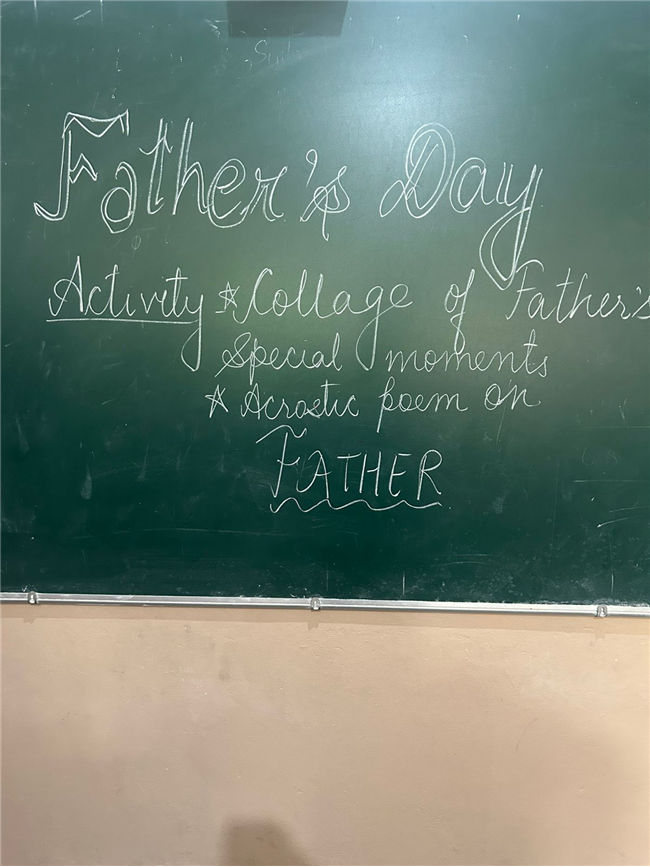 Father's Day
Activity ☆ Collage of Father's
Special moments
☆ Acrostic poem on
FATHER